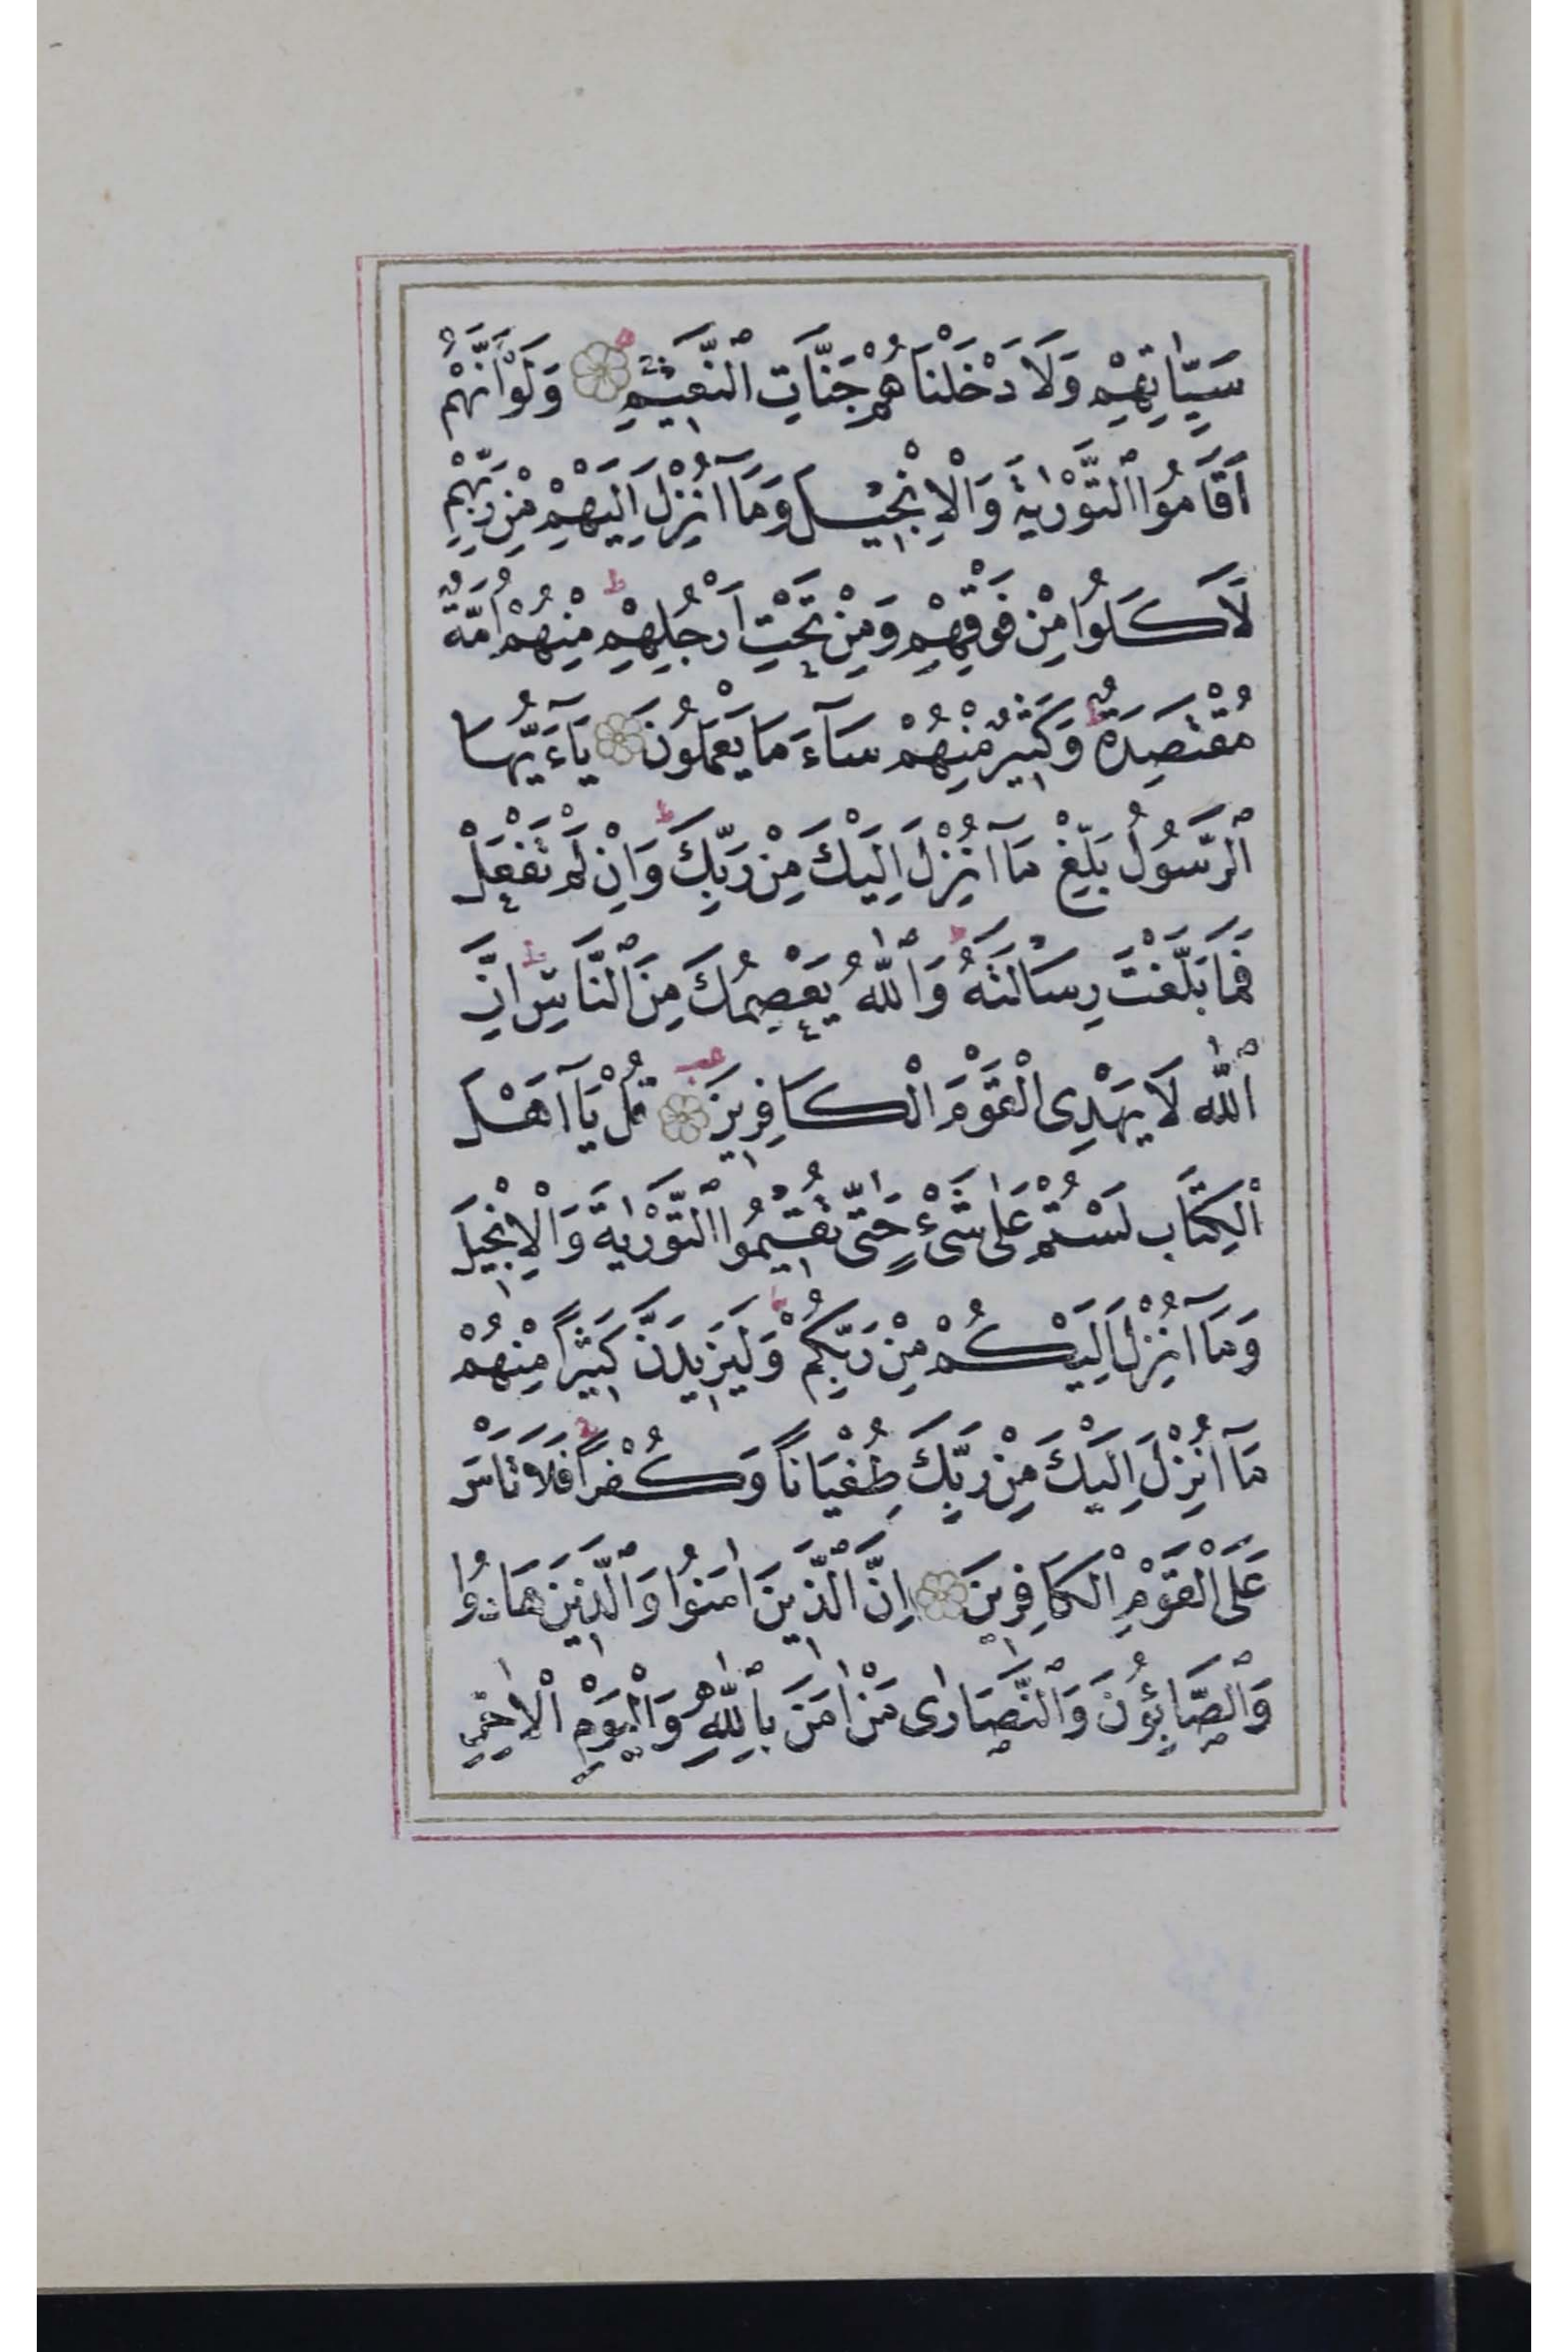 سَيِّاٰتِهِمْ وَلَاَدْخَلْنَاهُمْ جَنَّاتِ ٱلنَّعِيمِ وَلَوْ اَنَّهُمْ
اَقَامُوا ٱلتَّوْرٰيةَ وَالْاِنْجِيلَ وَمَآ اُنْزِلَ اِلَيْهِمْ مِنْ رَبِّهِمْ
لَاَكَلُوا مِنْ فَوْقِهِمْ وَمِنْ تَحْتِ اَرْجُلِهِمْ ط مِنْهُمْ اُمَّةٌ
مُقْتَصِدَةٌ ط وَكَثِيرٌ مِنْهُمْ سَآءَ مَا يَعْمَلُونَ يَآءَيُّهَا
ٱلرَّسُولُ بَلِّغْ مَآ اُنْزِلَ اِلَيْكَ مِنْ رَبِّكَ ط وَاِنْ لَمْ تَفْعَلْ
فَمَا بَلَّغْتَ رِسَالَتَهُ ط وَٱللّٰهُ يَعْصِمُكَ مِنَ ٱلنَّاسِ ط اِنَّ
ٱللّٰه لَا يَهْدِى الْقَوْمَ الْكَافِرِينَ قُلْ يَآ اَهْلَ
الْكِتَابِ لَسْتُمْ عَلٰى شَىْءٍ حَتّٰى تُقِيمُوا ٱلتَّوْرٰيةَ وَالْاِنْجِيلَ
وَمَآ اُنْزِلَ اِلَيْكُمْ مِنْ رَبِّكُمْ ط وَلَيَزِيدَنَّ كَثِيراً مِنْهُمْ
مَآ اُنْزِلَ اِلَيْكَ مِنْ رَبِّكَ طُغْيَاناً وَكُفْراً فَلَا تَاْسَ
عَلَى الْقَوْمِ الْكَافِرِينَ اِنَّ ٱلَّذِينَ اٰمَنُوا وَٱلَّذِينَ هَادُوا
وَٱلصَّابِئُونَ وَٱلنَّصَارٰى مَنْ اٰمَنَ بِٱللّٰهِ وَالْيَوْمِ الْاٰخِرِ